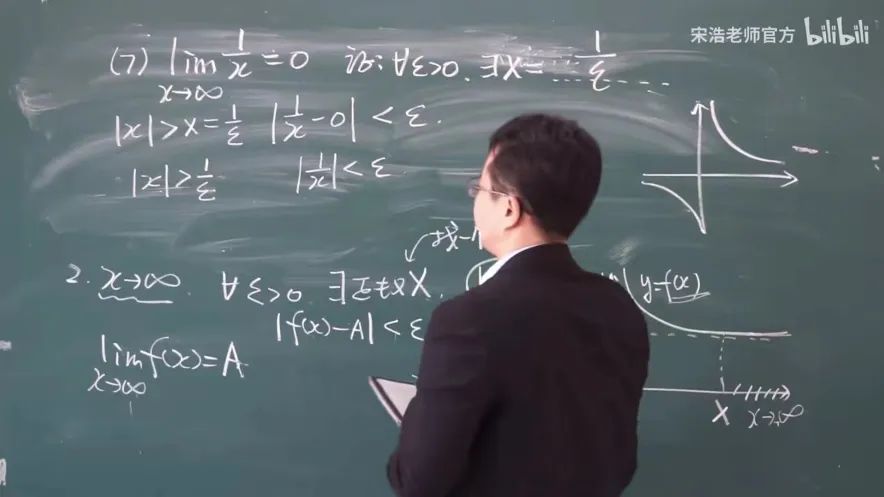 宋浩老师官方 bilibili
(7) lim 1/x = 0 证: ∀ε>0. ∃X= 1/ε
x→∞
|x|>X=1/ε |1/x - 0| < ε.
|x|>1/ε |1/x| < ε
找一个
2. x→∞. ∀ε>0. ∃正数X. y=f(x)
|f(x)-A| < ε
lim f(x)=A
x→∞
X x→∞